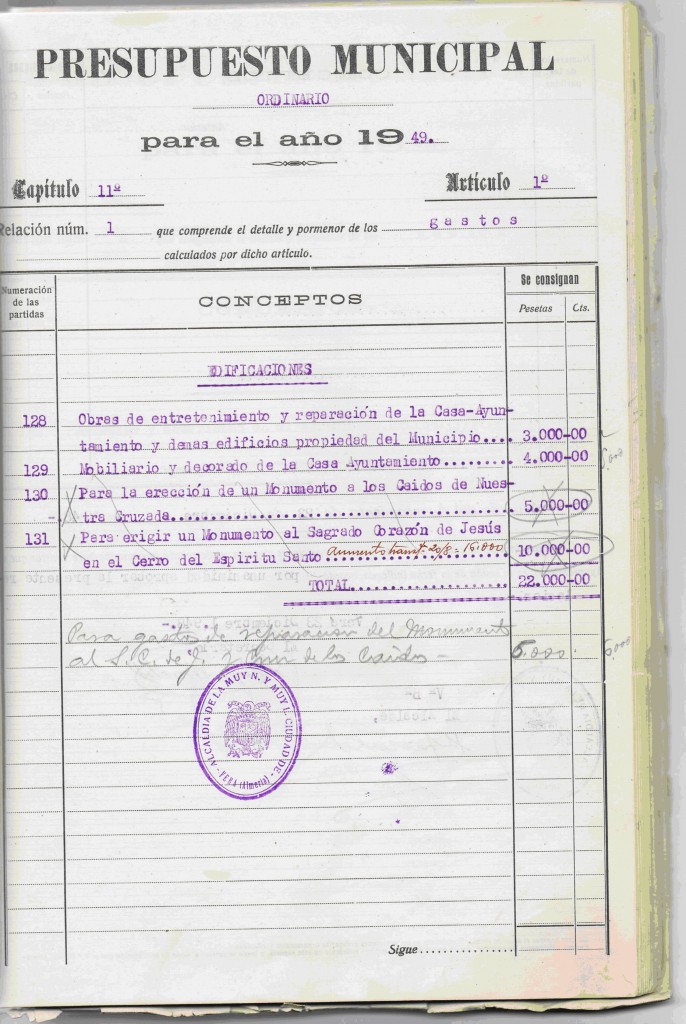 PRESUPUESTO MUNICIPAL
ORDINARIO
para el año 1949.
Capítulo 11º Artículo 1º
Relación núm. 1 que comprende el detalle y pormenor de los gastos
calculados por dicho artículo.
Numeración de las partidas CONCEPTOS Se consignan
Pesetas Cts.
EDIFICACIONES
128 Obras de entretenimiento y reparación de la Casa-Ayun-
tamiento y demas edificios propiedad del Municipio.... 3.000-00
129 Mobiliario y decorado de la Casa Ayuntamiento......... 4.000-00 5.000
130 Para la erección de un Monumento a los Caidos de Nues-
- tra Cruzada............................................ 5.000-00
131 Para erigir un Monumento al Sagrado Corazón de Jesús
en el Cerro del Espiritu Santo Aumento transf. 20/8 = 15.000 10.000-00
TOTAL................. 22.000-00
Para gastos de reparación del Monumento
al S. C. de J. y Cruz de los Caidos - 5.000. 5.000
ALCALDIA DE LA MUY N. Y MUY L. CIUDAD DE
VERA (Almería)
Sigue................